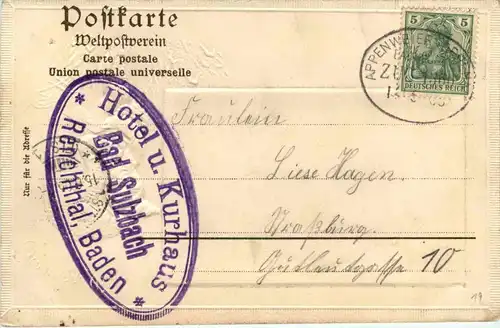 Postkarte
Weltpostverein
Carte postale
Union postale universelle
Nur für die Adresse
5 5
DEUTSCHES REICH
APPENW
Z
Hotel u. Kurhaus
Bad Sulzbach
Renchthal, Baden
Fräulein
Liese Hagen
Straßburg.
Gutleutgasse 10
19